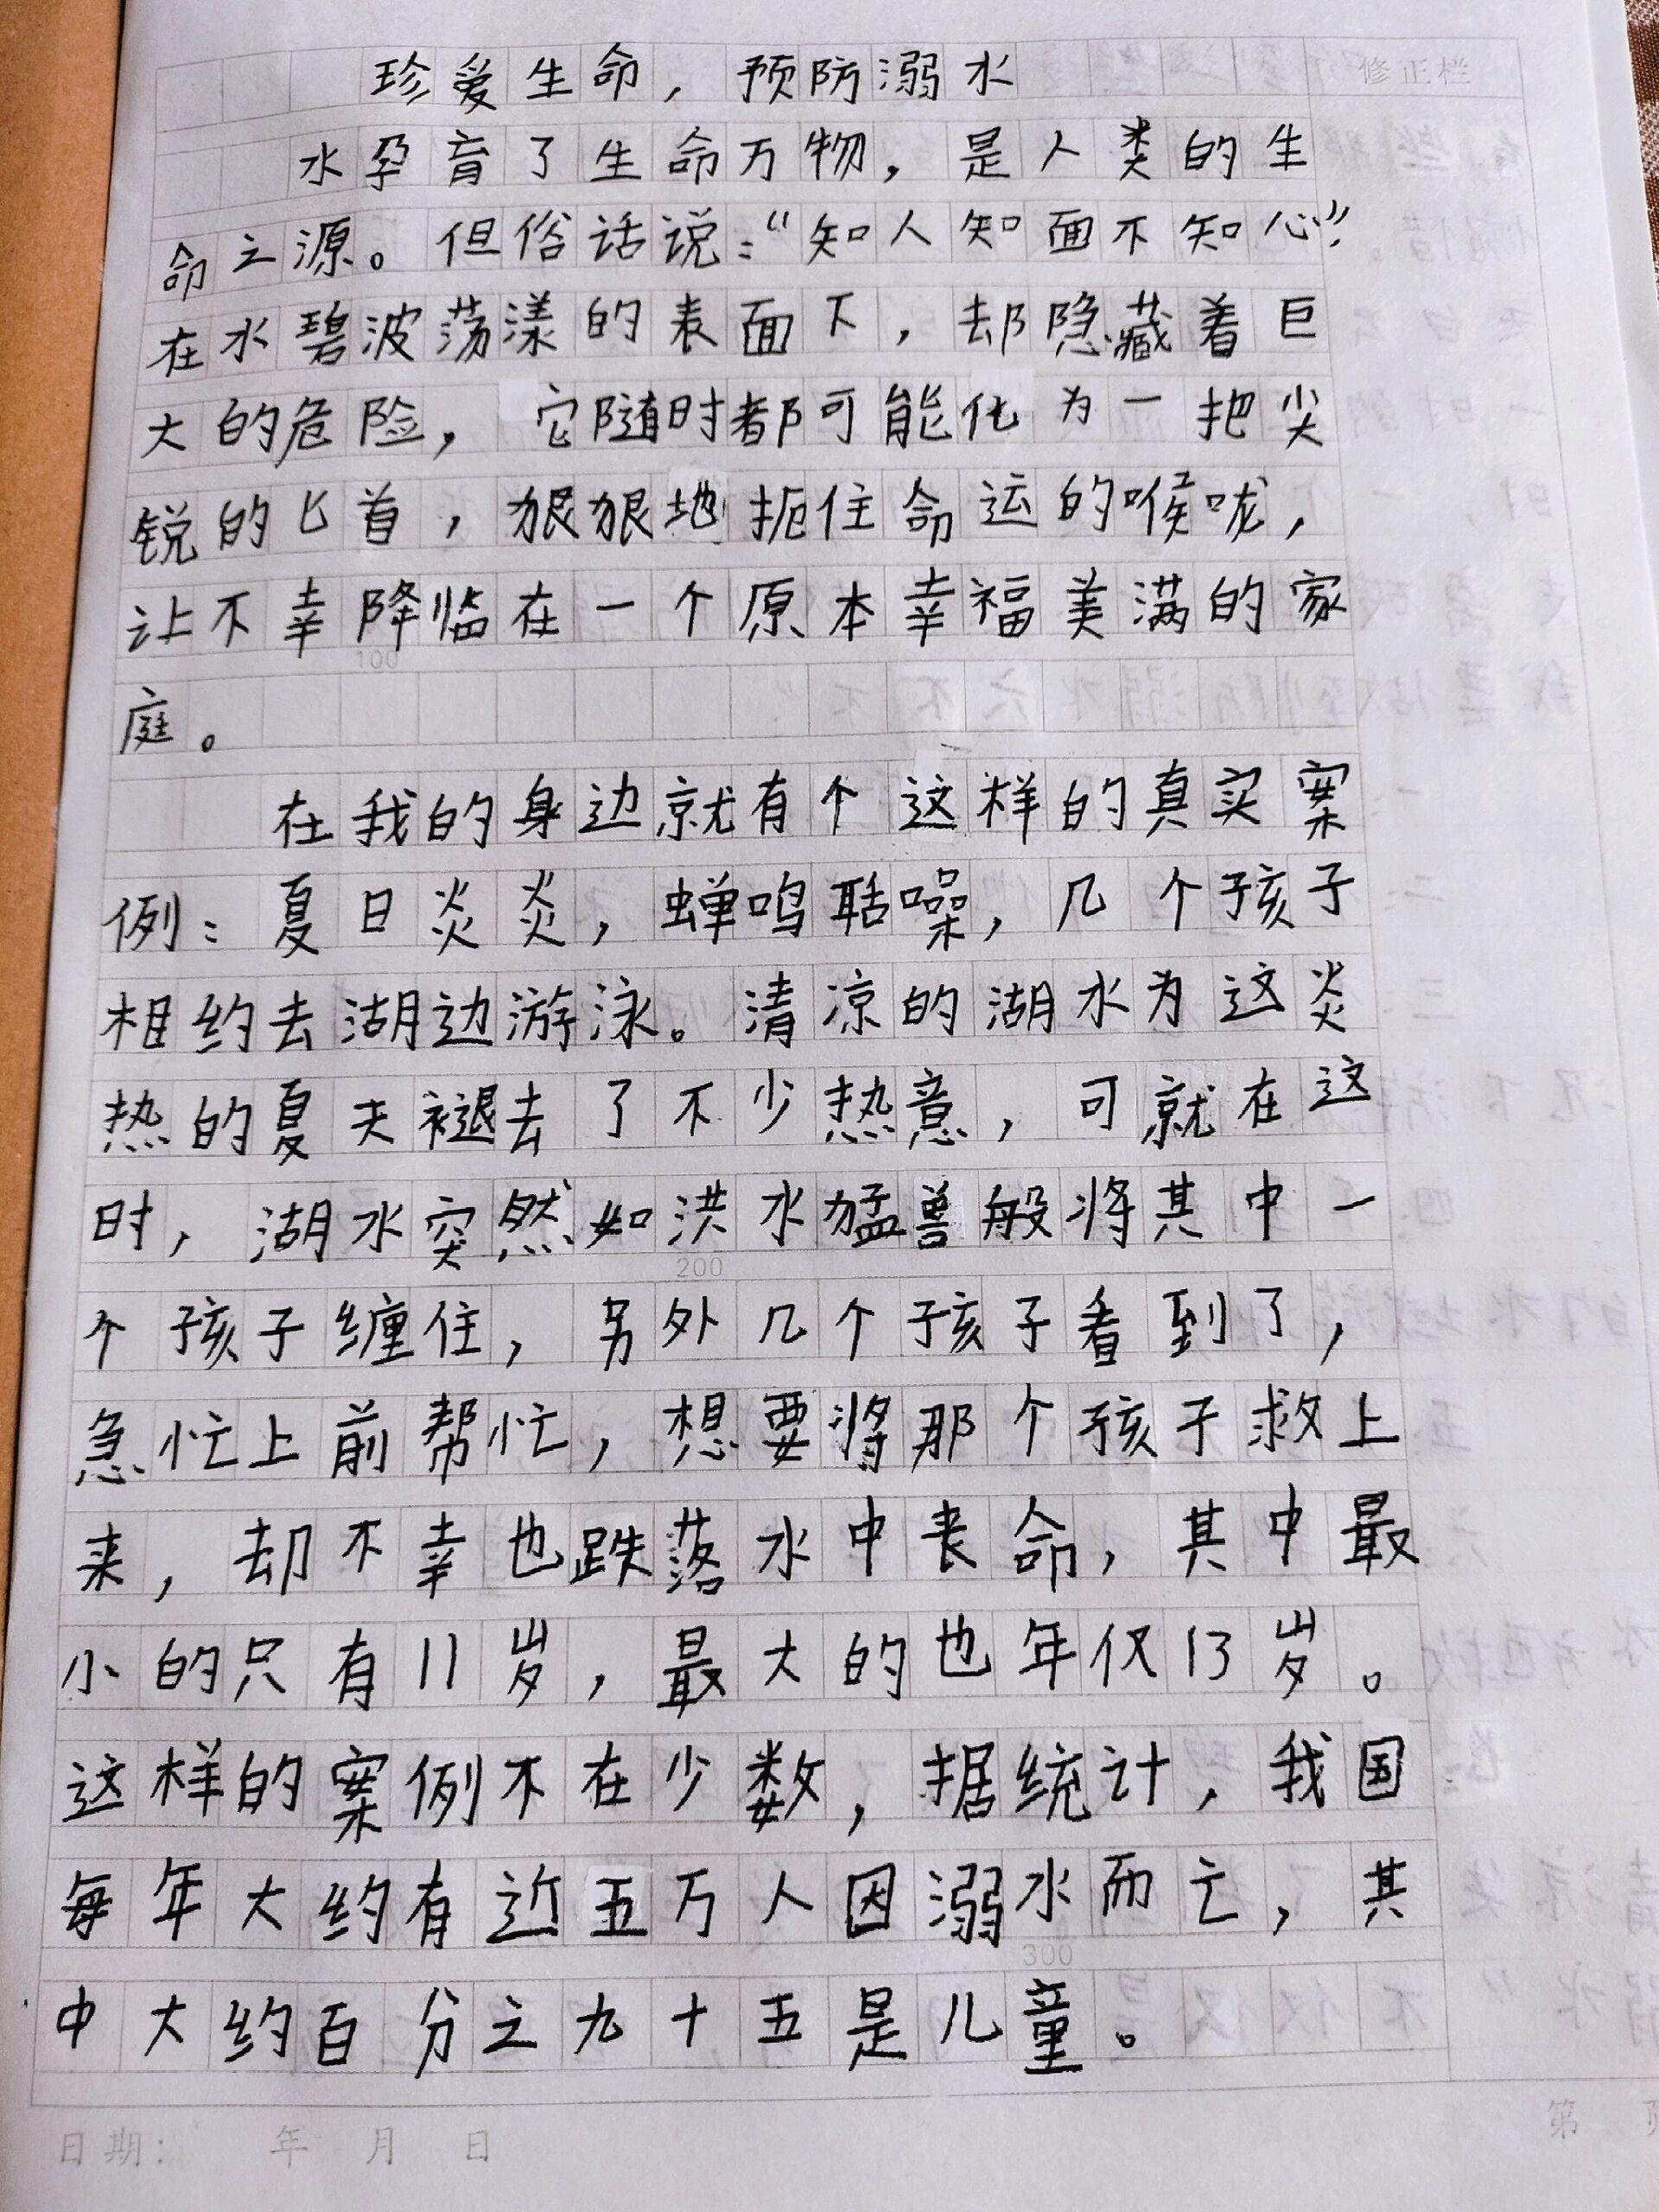 珍爱生命，预防溺水
修正栏
水孕育了生命万物，是人类的生
命之源。但俗话说：“知人知面不知心”，
在水碧波荡漾的表面下，却隐藏着巨
大的危险，它随时都可能化为一把尖
锐的匕首，狠狠地扼住命运的喉咙，
让不幸降临在一个原本幸福美满的家
100
庭。
在我的身边就有个这样的真实案
例：夏日炎炎，蝉鸣聒噪，几个孩子
相约去湖边游泳。清凉的湖水为这炎
热的夏天褪去了不少热意，可就在这
时，湖水突然如洪水猛兽般将其中一
200
个孩子缠住，另外几个孩子看到了，
急忙上前帮忙，想要将那个孩子救上
来，却不幸也跌落水中丧命，其中最
小的只有11岁，最大的也年仅13岁。
这样的案例不在少数，据统计，我国
每年大约有近五万人因溺水而亡，其
300
中大约百分之九十五是儿童。
日期： 年 月 日
第